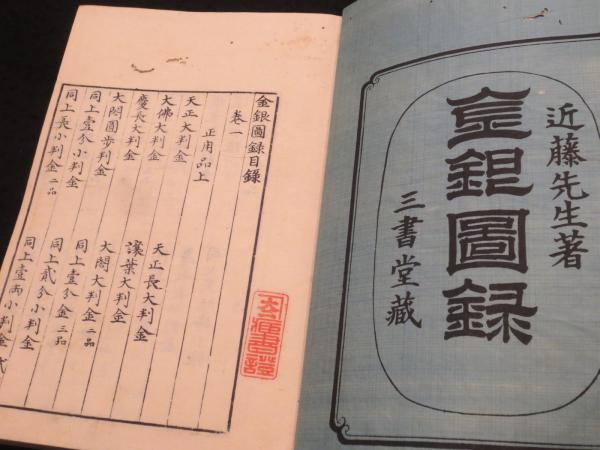 近藤先生著
金銀圖録
三書堂藏
金銀圖録目録
卷一
正用品上
天正大判金 天正長大判金
大佛大判金 讓葉大判金
慶長大判金 大閤大判金二品
大閤圓歩判金 同上壹分金二品
同上壹分小判金 同上貳分金三品
同上長小判金二品 同上壹両小判金